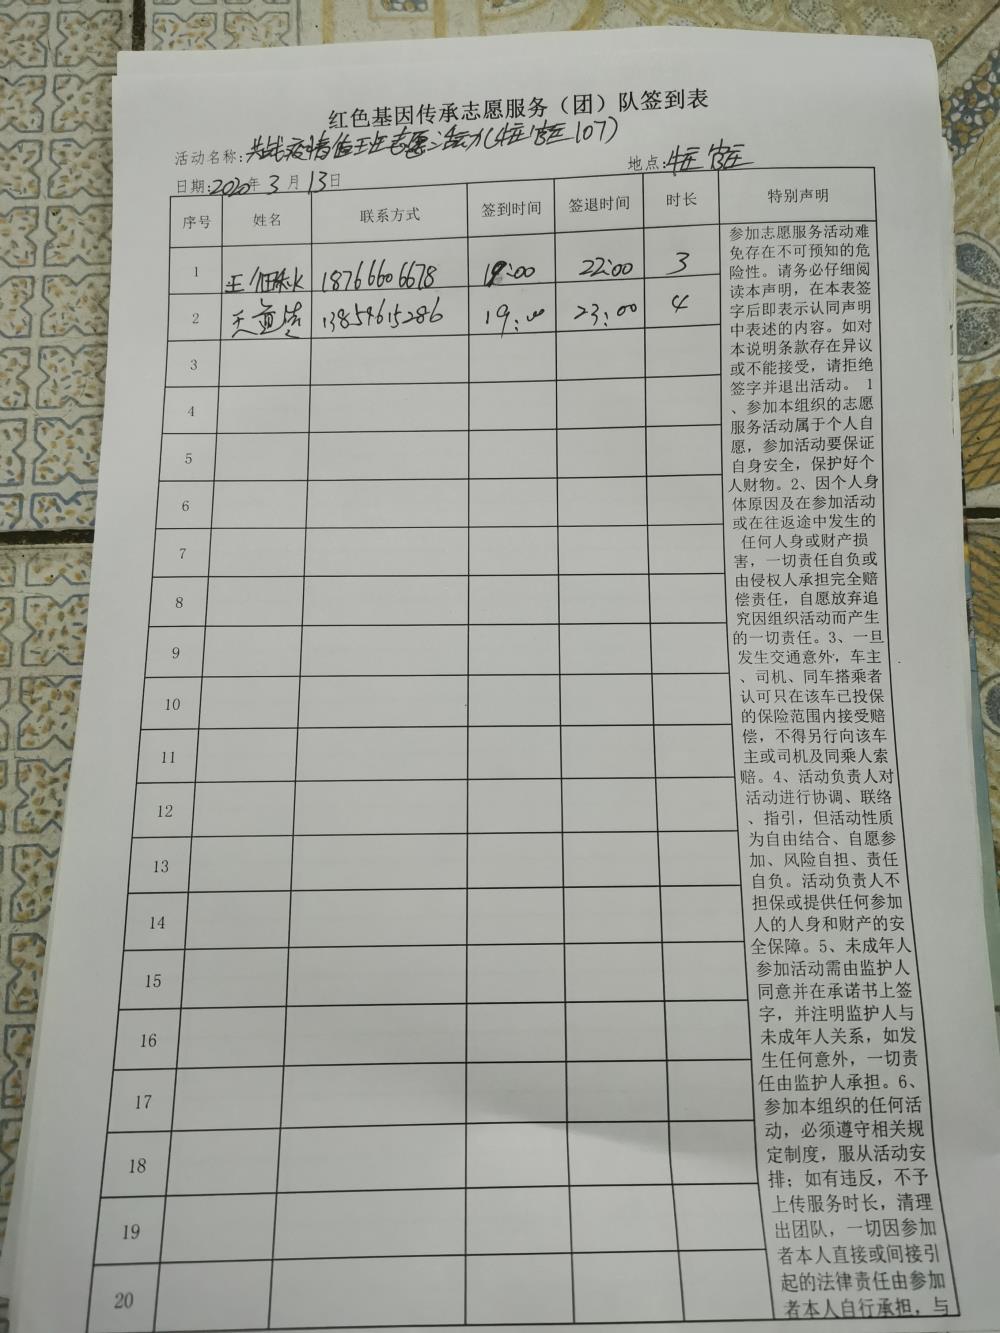 红色基因传承志愿服务（团）队签到表
活动名称:共战疫情值班志愿活动 107)
日期:2020年3月13日 地点:
序号 姓名 联系方式 签到时间 签退时间 时长 特别声明
1 王 18766606678 19:00 22:00 3
2 13854615286 19:00 23:00 4
3
4
5
6
7
8
9
10
11
12
13
14
15
16
17
18
19
20
参加志愿服务活动难
免存在不可预知的危
险性。请务必仔细阅
读本声明，在本表签
字后即表示认同声明
中表述的内容。如对
本说明条款存在异议
或不能接受，请拒绝
签字并退出活动。 1
、参加本组织的志愿
服务活动属于个人自
愿，参加活动要保证
自身安全，保护好个
人财物。2、因个人身
体原因及在参加活动
或在往返途中发生的
任何人身或财产损
害，一切责任自负或
由侵权人承担完全赔
偿责任，自愿放弃追
究因组织活动而产生
的一切责任。3、一旦
发生交通意外，车主
、司机、同车搭乘者
认可只在该车已投保
的保险范围内接受赔
偿，不得另行向该车
主或司机及同乘人索
赔。4、活动负责人对
活动进行协调、联络
、指引，但活动性质
为自由结合、自愿参
加、风险自担、责任
自负。活动负责人不
担保或提供任何参加
人的人身和财产的安
全保障。5、未成年人
参加活动需由监护人
同意并在承诺书上签
字，并注明监护人与
未成年人关系，如发
生任何意外，一切责
任由监护人承担。6、
参加本组织的任何活
动，必须遵守相关规
定制度，服从活动安
排；如有违反，不予
上传服务时长，清理
出团队，一切因参加
者本人直接或间接引
起的法律责任由参加
者本人自行承担，与